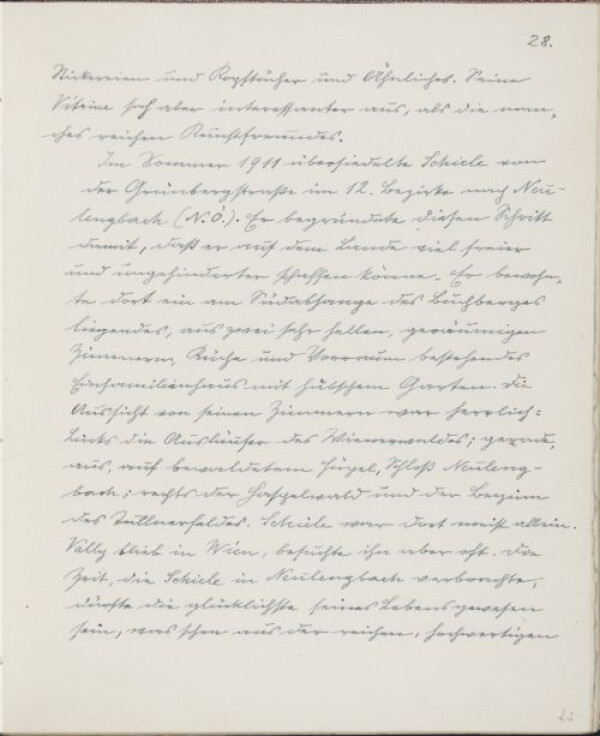 28.
Stickereien und Kopftücher und Ähnliches. Seine
Vitrine sah aber interessanter aus, als die man-
ches reichen Kunstfreundes.
Im Sommer 1911 übersiedelte Schiele von
der Grünbergstraße im 12. Bezirke nach Neu-
lengbach (N.Ö.). Er begründete diesen Schritt
damit, daß er auf dem Lande viel freier
und ungehinderter schaffen könne. Er bewohn-
te dort ein am Südabhange des Buchberges
liegendes, aus zwei sehr hellen, geräumigen
Zimmern, Küche und Vorraum bestehendes
Einfamilienhaus mit hübschem Garten. Die
Aussicht von seinen Zimmern war herrlich:
Links die Ausläufer des Wienerwaldes; gerade,
aus, auf bewaldetem Hügel, Schloß Neuleng-
bach; rechts der Haspelwald und der Beginn
des Tullnerfeldes. Schiele war dort meist allein.
Vally blieb in Wien, besuchte ihn aber oft. Die
Zeit, die Schiele in Neulengbach verbrachte,
dürfte die glücklichste seines Lebens gewesen
sein, was schon aus der reichen, hochwertigen